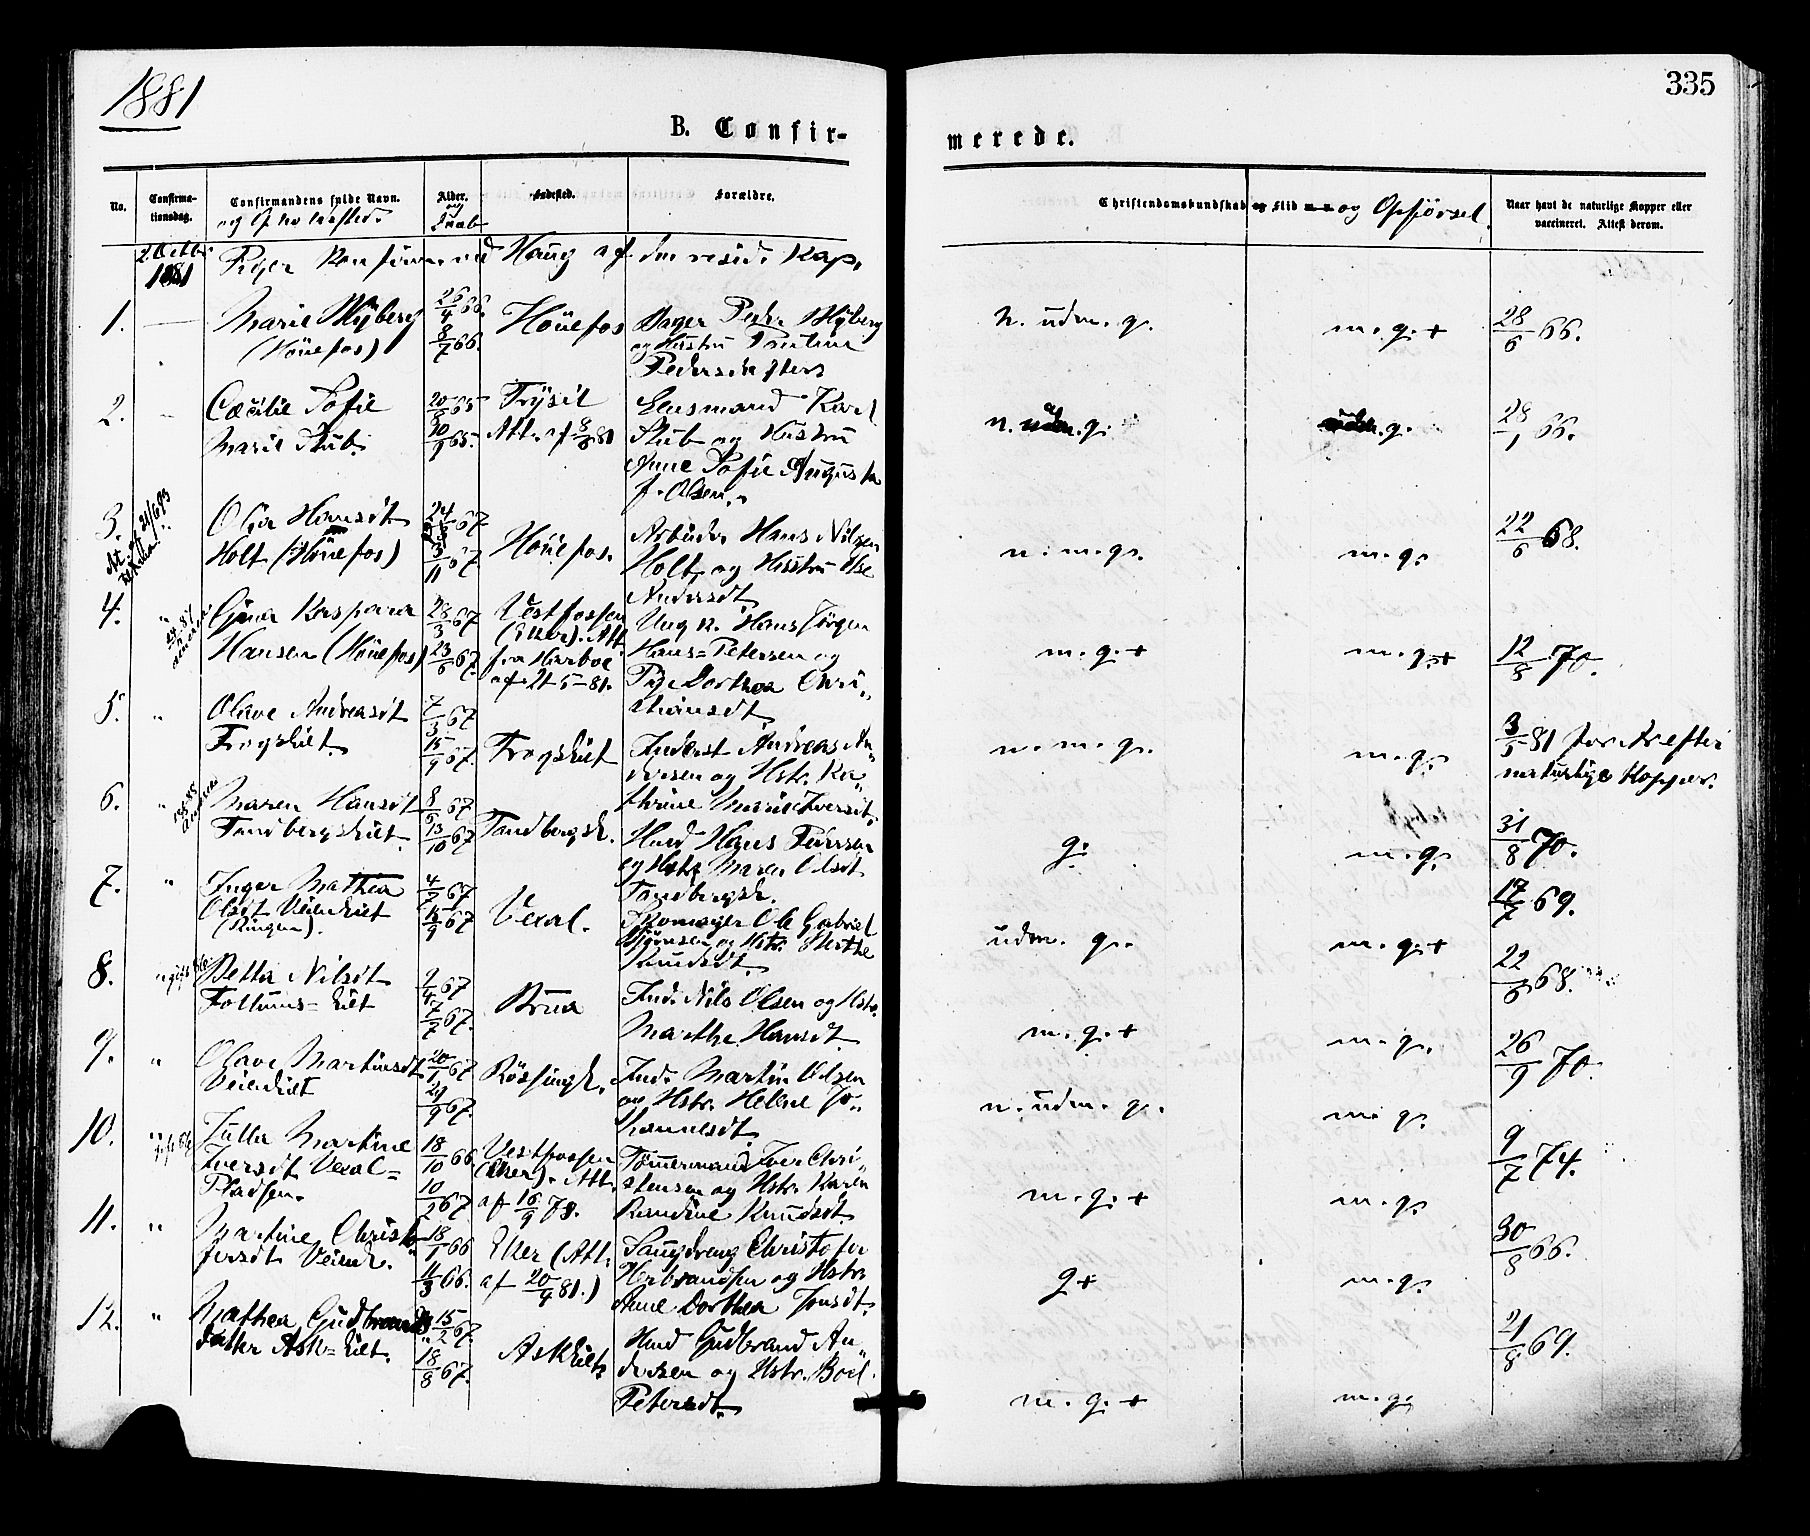 1881
335
B. Confir-
merede.
No.
Confirma-
tionsdag.
Confirmandens fulde Navn.
og Opholdssted.
Alder.
og
Daab
Fødested.
Forældre.
Christendomskundskab og Flid og Opførsel.
Naar havt de naturlige Kopper eller
vaccineret. Attest derom.
2 Octbr
1881
Piger Konfirmered Haug af den resid. Kap.
1.
Marie Myberg
(Hönefos)
26/4 66.
8/7 66.
Hönefos
Bager Peder Myberg
og Hustru Pauline
Pedersen
n. udm. g.
m. g. +
28/6 66.
2.
Cæcilie Sofie
Marie Stub.
20/8 65
10/9 65.
Trysil
Att. af 8/8 81
Lensmand Karl
Stub og Hustru
Anne Sofie Augusta
f. Olsen.
n. udm. g.
udm. g.
28/1 66.
3.
Olga Hansdt
Holt (Hönefos)
24/ 67
3/11 67.
Hönefos.
Arbeider Hans Nilsen
Holt og Hustru Else
Andersdt.
n. m. g.
m. g.
22/6 68.
4.
Gina Kaspara
Hansen (Hönefos)
28/3 67
23/6 67.
Vestfossen
(Eker). Att.
fra
af 21-5-81.
Ung k. Hans Jörgen
Hans-Petersen og
Pige Dorthea Chri"
stiansdt
m. g. +
m. g. +
12/8 70.
5.
"
Olave Andreasdt
Frogshiet.
7/3 67
15/9 67.
Frogshiet
Inderst Andreas An"
dersen og Hstr. Ka"
thrine Marie Iversdt.
n. m. g.
m. g.
3/5 81 for Ar efter
naturlige Kopper.
6.
"
Maren Hansdt
Tandbergshiet.
8/6 67
13/10 67
Tandbergsh.
Husd Hans Pedersen
og Hstr Maren Olsdt
Tandbergsh.
g.
m. g.
31/8 70.
7.
"
Inger Mathea
Olsdt Veienhiet
(Ringen).
4/2 67
15/9 67
Vexal.
Skomager Ole Gabriel
Björnsen og Hstr. Marthe
Knudsdt.
udm. g.
m. g. +
17/7 69.
8.
Betta Nilsdt
hiet
9/4 67
7/7 67.
Brua
Ind. Nils Olsen og Hstr.
Marthe Hansdt.
m. g. +
m. g.
22/6 68.
9.
"
Olave Martinsdt
Veienhiet
20/1 67
29/9 67.
Ind. Martin Olsen
og Hstr. Helene Jo"
hannesdt.
n. udm. g.
m. g.
26/9 70.
10.
Julla Martine
Iversdt Vexal-
Pladsen.
18/10 66.
10/2 67
Vestfossen
(Eker). Att.
af 16/9 78.
Tömmermand Iver Chri"
stensen og Hstr. Karen
Randine Knudsdt.
m. g. +
m. g.
9/7 74.
11.
"
Martine Christo"
fersdt Veienh.
18/1 66
11/3 66.
Eker (Att.
af 20/9 81.)
Saugdreng Christofer
Herbrandsen og Hstr.
Anne Dorthea Jonsdt.
g +
m. g.
30/8 66.
12.
"
Mathea Gudbrands"
datter Ask-hiet.
15/2 67.
18/8 67.
Askhiet
Husd Gudbrand An"
dersen og Hstr. Boel
Petersdt.
m. g. +
m. g.
21/8 69.